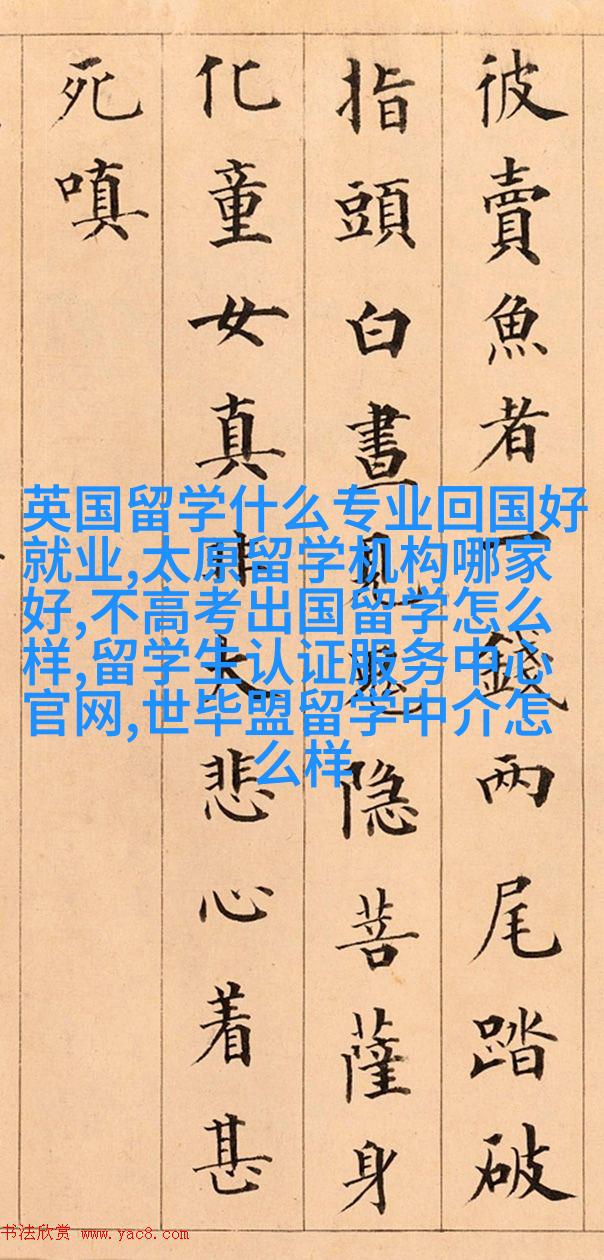 彼賣魚者一錢兩尾踏破
指頭白晝隐菩薩身
化童女真非大悲心着甚
死嗔
英国留学什么专业回国好
就业,太原留学机构哪家
好,不高考出国留学怎么
样,留学生认证服务中心
官网,世毕盟留学中介怎
么样
书法欣赏 www.yac8.com